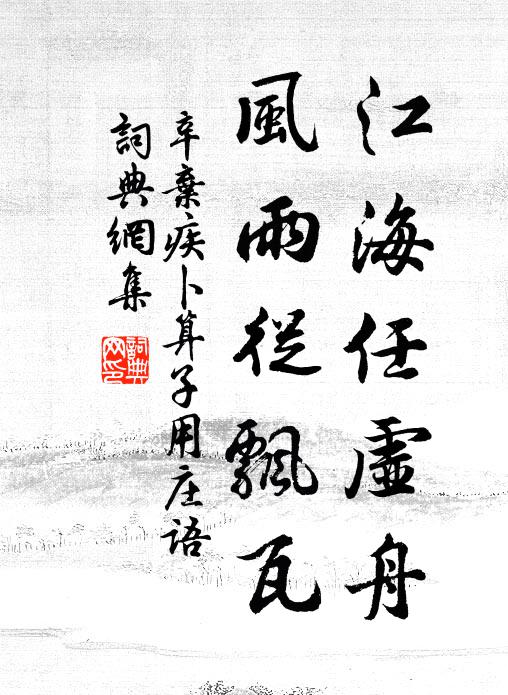 江海任虛舟
風雨從飄瓦
辛棄疾卜算子用庄語
詞典網集
詞典网印